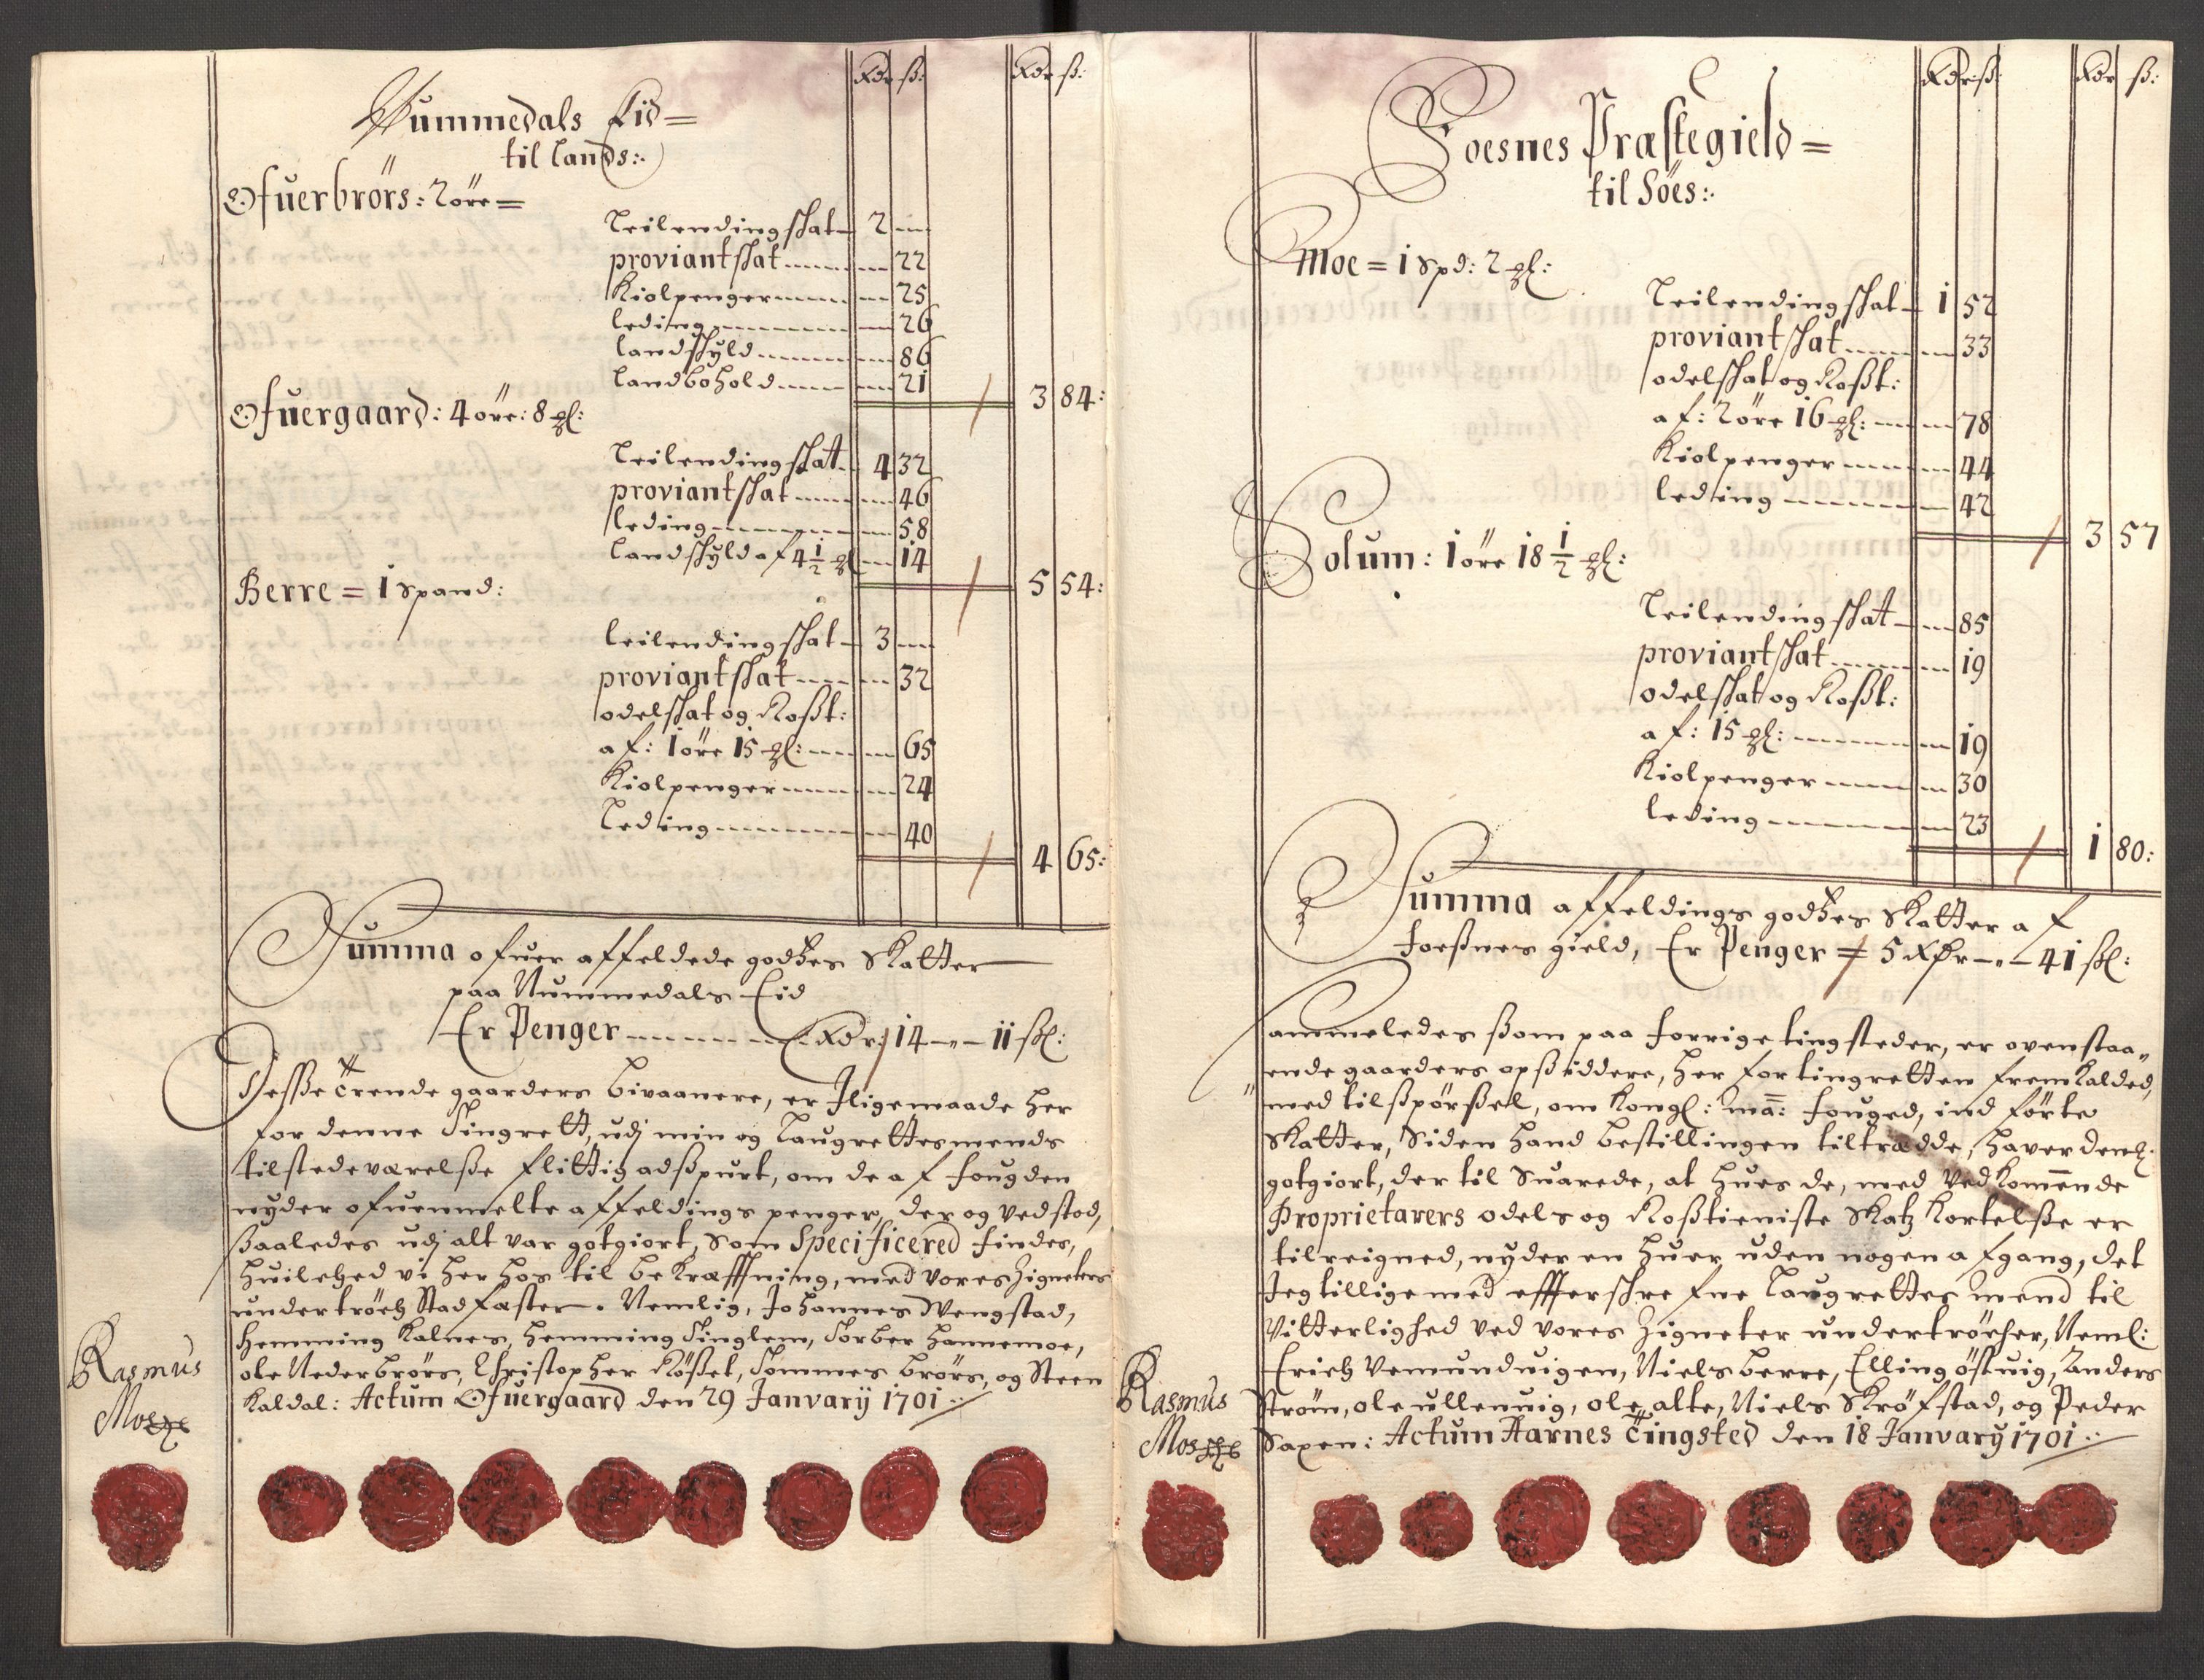 Xdr ß: Xdr ß:
Nummedals Eid=
til lands:
Ofuerbrörs: 2 öre=
Leilending skat 2 —
proviant skat — 22
Kiolpenger — 25
leding — 26
landskyld — 86
landbohold — 21
3 84:
Ofuergaard: 4 öre: 8 ♏l:
Leilending skat 4 32
proviant skat — 46
leding — 58
landskyld af 4 1/2 ♏l — 14
5 54:
Berre = 1 spand:
leilending skat 3 —
proviant skat — 32
odelskat og Roßt:
af: 1 öre 15 ♏l: — 65
Kiolpenger — 24
Leding — 40
4 65:
Summa ofuer affeldede godtzes Skatter
paa Nummedals Eid
Er Penger — Xdr: 14 — " — 11 ßl:
Desße trende gaarders bivaanere, er Iligemaade her
for denne Tingrett, udj min og Laugrettesmends
tilstedeværelße flittig adßpurt, om de af fougden
nyder ofuenmelte affeldings penger, der og vedstod,
ßaaledes udj alt var gotgiort, som Specificered findes,
huilched vi her hos til bekræfftning, med vores Zigneters
undertröch Stadfæster. Nemlig, Johannes Wengstad,
Hemming Kalnes, Hemming Tinglem, Torber Hannemoe,
ole Nederbrörs, Christopher Rößet, Tommes brörs, og Steen
Kaldal: Actum Ofuergaard den 29 Janvarij 1701
Rasmus
Mosche
Xdr ß: Xdr ß:
Foesnes Præstegield=
til Söes:
Moe = 1 spd: 2 ♏l:
Leilending skat 1 52
proviant skat — 33
odelskat og Roßt:
af: 2 öre 16 ♏l: — 78
Kiolpenger — 44
leding — 42
3 57
Solum: 1 öre 18 1/2 ♏l:
Leilending skat — 85
proviant skat — 19
odelskat og Roßt:
af: 15 ♏l: — 19
Kiolpenger — 30
leding — 23
1 80:
Summa affeldings godtzes Skatter af
foeßnes gield, Er Penger = 5 Xdr — " — 41 ßl:
Sammeledes ßom paa forrige tingsteder, er ovenstaa"
"ende gaarders opßiddere, her for tingretten fremkalded,
med tilßpörßel, om Kongl: ma: fouged, ind förte
Skatter, Siden hand bestillingen tiltrædde, haver dem
gotgiort, der til Suarede, at hues de, med vedkomende
Proprietarers odels og Roßtieniste Skatz Kortelße er
tilreigned, nyder en huer uden nogen afgang, det
Jeg tillige med effterskrefne Laugrettes mend til
Vitterlighed ved vores Zigneter undertröcher, Neml:
Erich Vemunduigen, Niels berre, Elling östuig, Anders
Ström, ole ullenuig, ole alte, Niels Skröfstad, og Peder
Saxen: Actum Aarnes Tingsted den 18 Janvarij 1701
Rasmus
Mosche